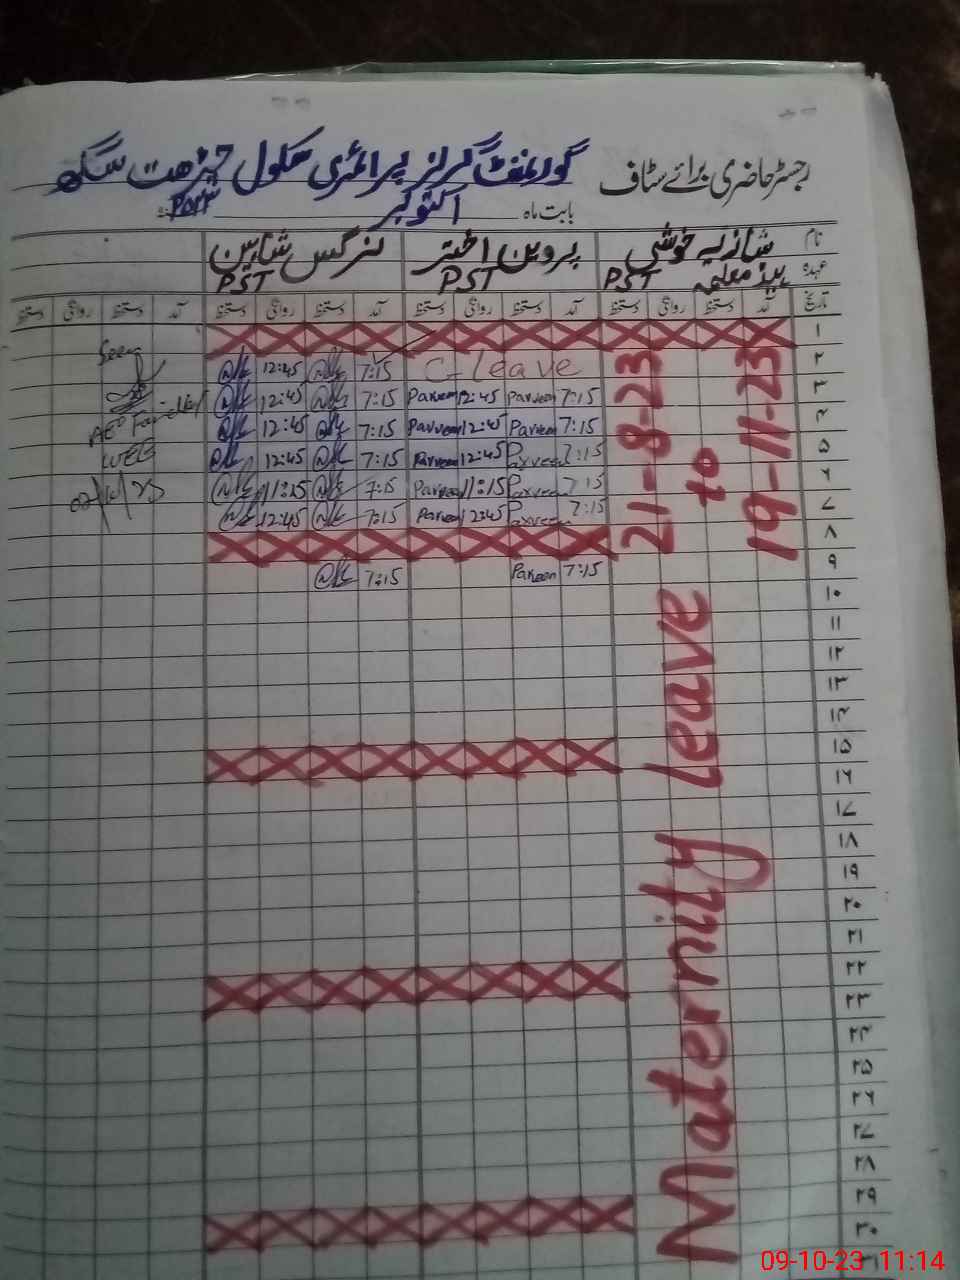 رجسٹر حاضری برائے سٹاف گورنمنٹ گرلز پرائمری سکول چڑھت سنگھ
بابت ماہ اکتوبر ۲۰۲۳
نام شازیہ خوشی پروین اختر نرگس شاہین
عہدہ ہیڈ معلمہ PST PST PST
تاریخ آمد دستخط روانگی دستخط آمد دستخط روانگی دستخط آمد دستخط روانگی دستخط آمد دستخط روانگی دستخط
۱
۲ C-leave 7:15 12:45 Seen
۳ 7:15 Parveen 12:45 Parveen 7:15 12:45
۴ 7:15 Parveen 12:45 Parveen 7:15 12:45 AEO
۵ 7:15 Parveen 12:45 Parveen 7:15 12:45
۶ 7:15 Parveen 11:15 Parveen 7:15 11:15
۷ 7:15 Parveen 12:45 Parveen 7:15 12:45
۸
۹ 7:15 Parveen 7:15
۱۰
۱۱
۱۲
۱۳
۱۴
۱۵
۱۶
۱۷
۱۸
۱۹
۲۰
۲۱
۲۲
۲۳
۲۴
۲۵
۲۶
۲۷
۲۸
۲۹
۳۰
Maternity leave 21-8-23 to 19-11-23
09-10-23 11:14